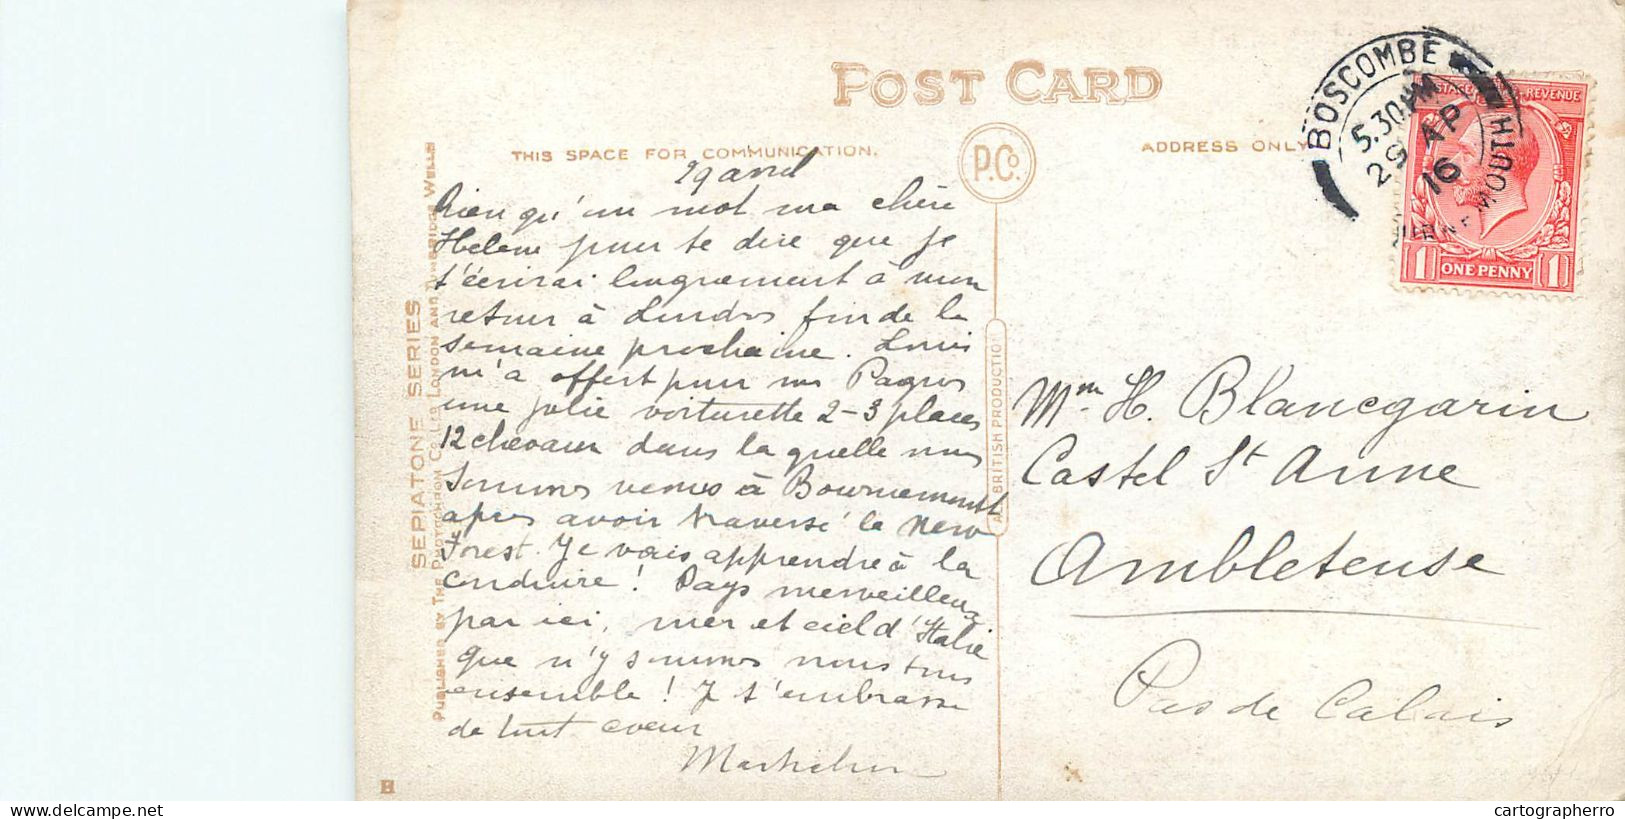 POST CARD
THIS SPACE FOR COMMUNICATION.
ADDRESS ONLY
P.Co.
BOSCOMBE
5.30PM
29 AP
16
REVENUE
1 ONE PENNY 1
SEPIATONE SERIES
PUBLISHED BY THE PHOTOCHROM CO. LTD LONDON AND TUNBRIDGE WELLS
A BRITISH PRODUCTION
29 avril
Rien qu'un mot ma chère
Helene pour te dire que je
t'écrirai longuement à mon
retour à Londres fin de la
semaine prochaine. Louis
m'a offert pour nos Paques
une jolie voiturette 2-3 places
12 chevaux dans la quelle nous
sommes venus à Bournemouth
après avoir traversé la New
Forest. Je vais apprendre à la
conduire ! Pays merveilleux
par ici, mer et ciel d'Italie
que n'y sommes nous tous
ensemble ! Je t'embrasse
de tout coeur
Mme H. Blancgarin
Castel St Anne
Ambleteuse
Pas de Calais
H
delcampe.net
cartographerro